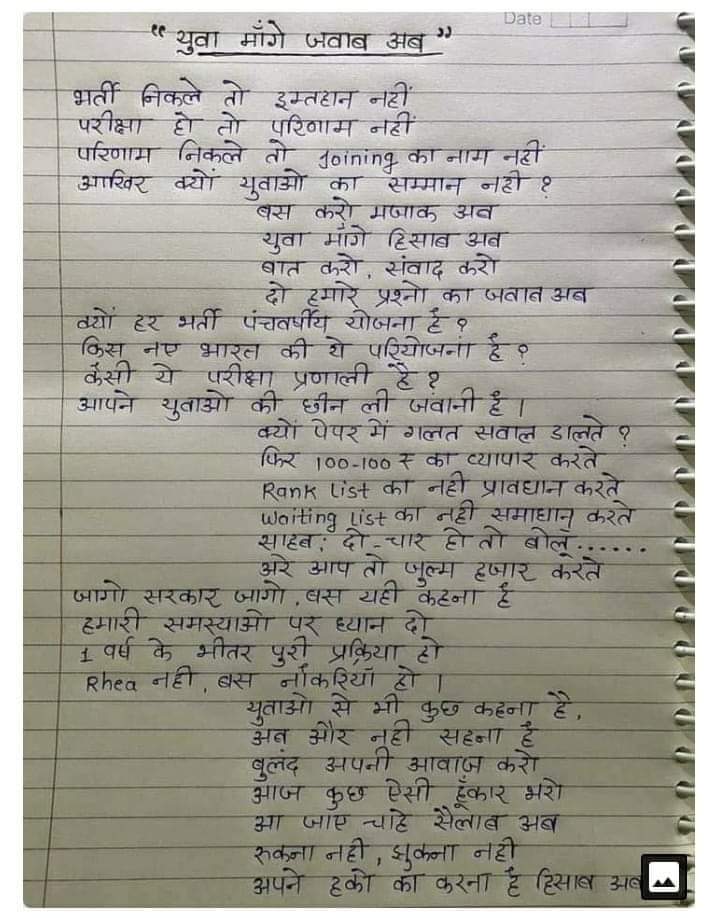 Date
“ युवा माँगे जवाब अब ”
भर्ती निकले तो इम्तहान नहीं
परीक्षा हो तो परिणाम नहीं
परिणाम निकले तो Joining का नाम नहीं
आखिर क्यों युवाओ का सम्मान नही ?
बस करो मजाक अब
युवा माँगे हिसाब अब
बात करो, संवाद करो
दो हमारे प्रश्नो का जवाब अब
क्यों हर भर्ती पंचवर्षीय योजना है ?
किस नए भारत की ये परियोजना है ?
कैसी ये परीक्षा प्रणाली है ?
आपने युवाओ की छीन ली जवानी है।
क्यों पेपर में गलत सवाल डालते ?
फिर 100-100 ₹ का व्यापार करते
Rank list का नही प्रावधान करते
Waiting list का नही समाधान करते
साहब: दो-चार हो तो बोलूँ......
अरे आप तो जुल्म हजार करते
जागो सरकार जागो, बस यही कहना है
हमारी समस्याओ पर ध्यान दो
1 वर्ष के भीतर पुरी प्रक्रिया हो
Rhea नही, बस नौकरियाँ हो।
युवाओ से भी कुछ कहना है,
अब और नही सहना है
बुलंद अपनी आवाज करो
आज कुछ ऐसी हूँकार भरो
आ जाए चाहे सैलाब अब
रुकना नही, झुकना नही
अपने हको का करना है हिसाब अब